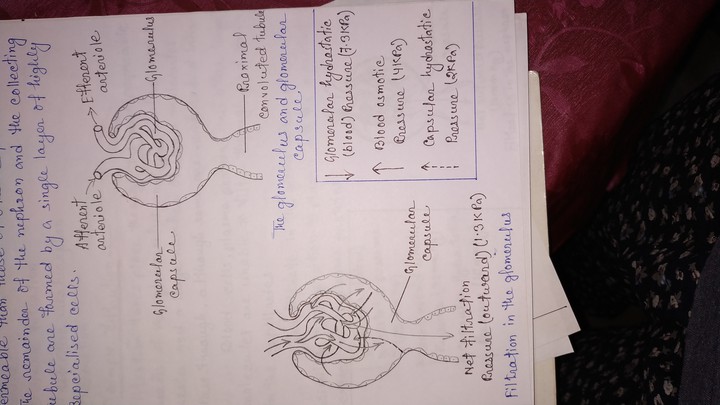 than those
The remainder of the nephron and the collecting
tubule are formed by a single layer of highly
specialised cells.
Afferent
arteriole
Efferent
arteriole
Glomerulus
Glomerular
capsule
Proximal
convoluted tubule
The glomerulus and glomerular
capsule.
Glomerular hydrostatic
(blood) Pressure (7.3KPa)
Blood osmotic
Pressure (4KPa)
Capsular hydrostatic
Pressure (2KPa)
Glomerular
capsule
Net filtration
Pressure (outward) (1.3KPa)
Filtration in the glomerulus